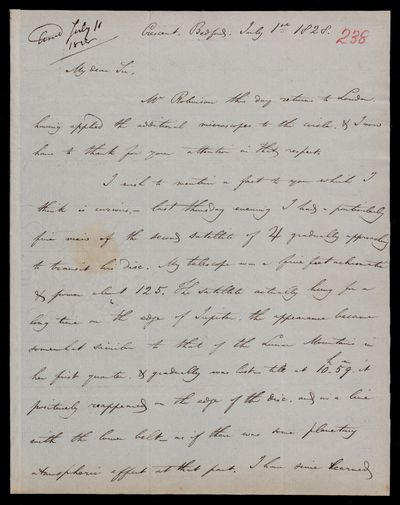 July 11
1828
Crescent, Bedford. July 1st 1828.
236
My dear Sir,
Mr Robinson this day returns to London
having applied the additional microscopes to the circle, & I now
have to thank for your attention in that respect.
I wish to mention a fact to you which I
think is curious, – last thursday evening I had a particularly
fine view of the second satellite of ♃ gradually approaching
to transit his disc. My telescope was a five feet achromatic
& power about 125. The satellite actually hung for a
long time on the edge of Jupiter, the appearance became
somewhat similar to that of the Lunar Mountains in
her first quarter, & gradually was lost till at 10h.59m. it
positively reappeared on the edge of the disc, and in a line
with the lower belt – as if there was some planetary
atmospheric effect at that part. I have since learned